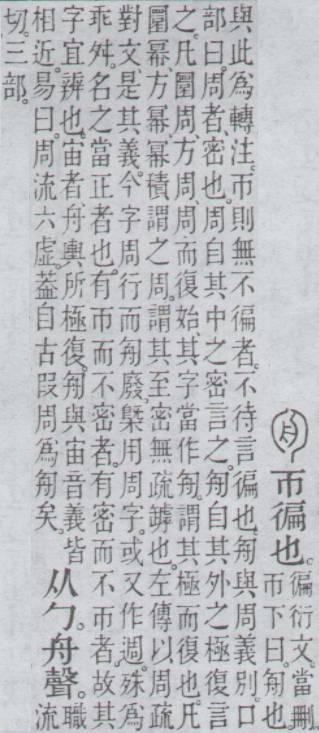 帀徧也。
徧衍文。當刪。
帀下曰。𠣘也。
與此爲轉注。帀則無不徧者。不待言徧也。𠣘與周義別。口
部曰。周者、密也。周自其中之密言之。𠣘自其外之極復言
之。凡圜周、方周、周而復始、其字當作𠣘。謂其極而復也。凡
圜冪方冪冪積謂之周。謂其至密無疏罅也。左傳以周疏
對文是其義。今字周行而𠣘廢。槩用周字。或又作週。殊爲
乖舛。名之當正者也。有帀而不密者。有密而不帀者。故其
字宜辨也。宙者舟輿所極復。𠣘與宙音義皆
相近。易曰。周流六虛。葢自古叚周爲𠣘矣。
从勹。舟聲。
職
流
切。三部。